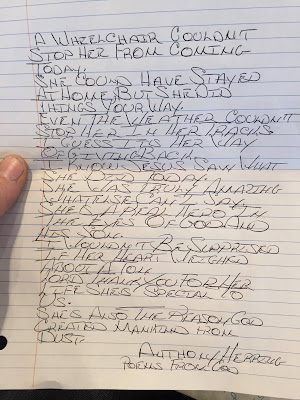 A WHEELCHAIR COULDN'T
STOP HER FROM COMING
TODAY.
SHE COULD HAVE STAYED
AT HOME, BUT SHE DID
THINGS YOUR WAY.
EVEN THE WEATHER COULDN'T
STOP HER IN HER TRACKS
I GUESS ITS HER WAY
OF GIVING BACK.
I KNOW JESUS SAW WHAT
SHE DID TODAY.
SHE WAS TRULY AMAZING
WHAT ELSE CAN I SAY.
SHE'S A REAL HERO IN
THE EYES OF GOD AND
HIS SON.
I WOULDN'T BE SURPRISED
IF HER HEART WEIGHED
ABOUT A TON.
LORD THANK YOU FOR HER
LIFE SHE'S SPECIAL TO
US.
SHE'S ALSO THE REASON GOD
CREATED MANKIND FROM
DUST.
ANTHONY HERRING
POEMS FROM GOD